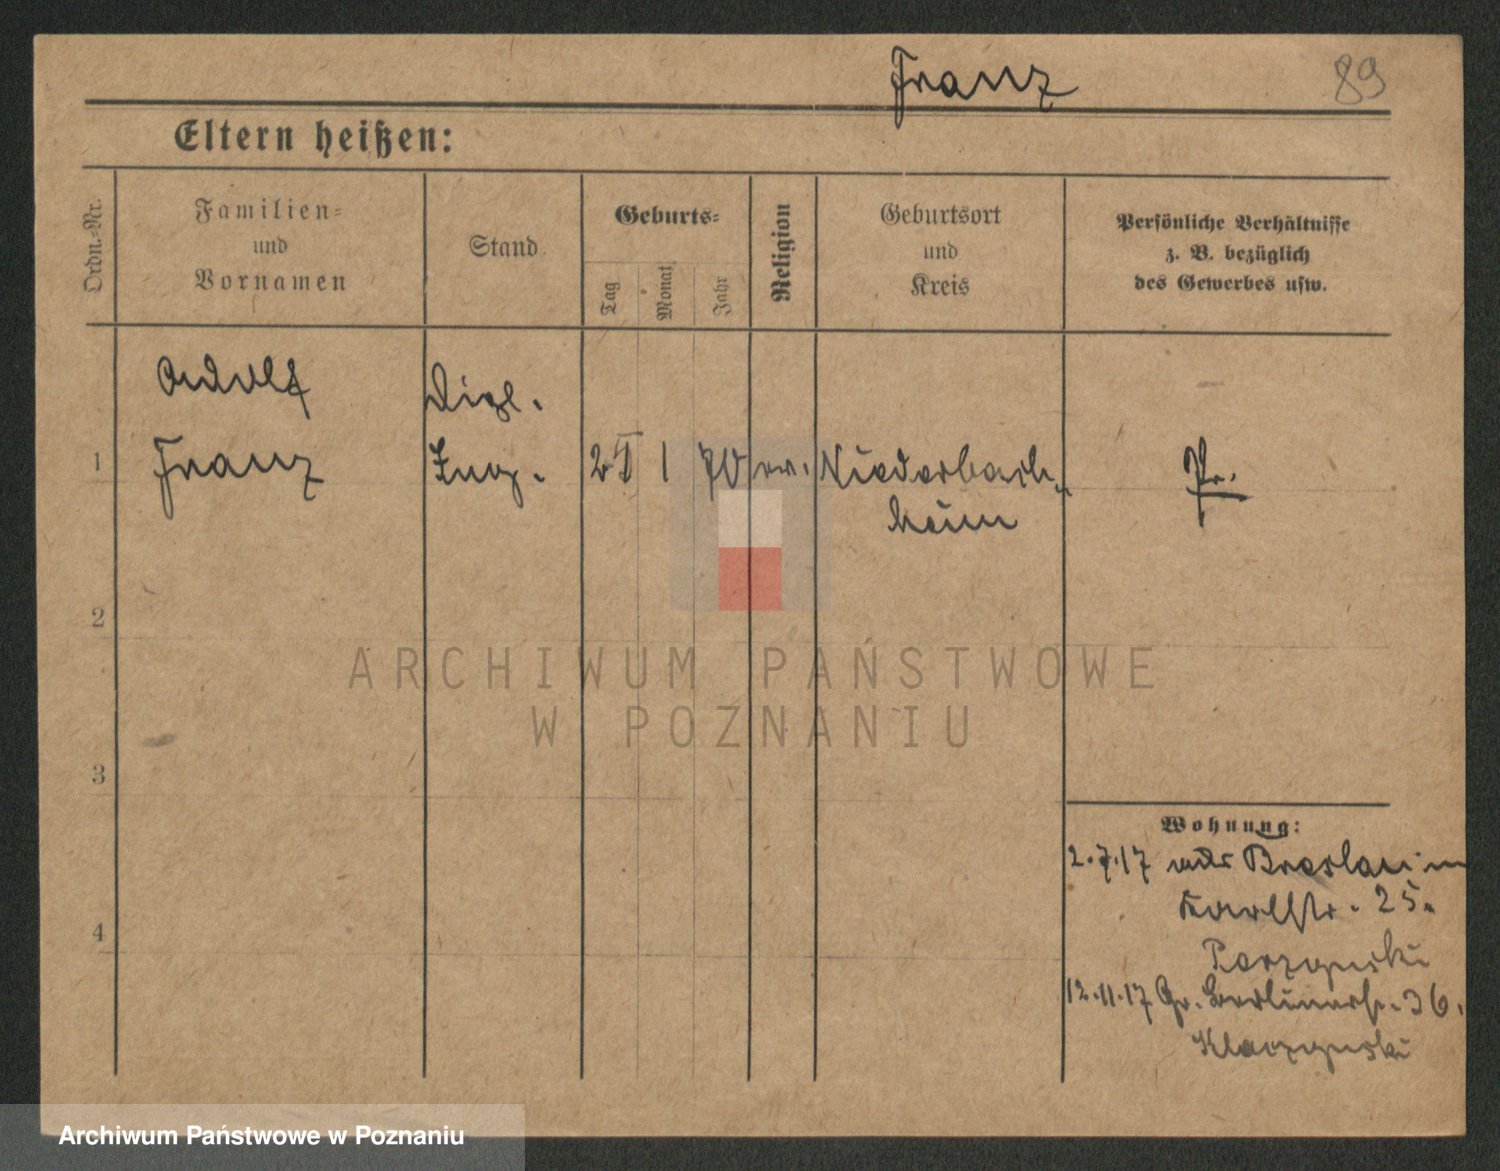 Franz
89
Eltern heißen:
Ordn.-Nr.
Familien-
und
Vornamen
Stand
Geburts-
Tag
Monat
Jahr
Religion
Geburtsort
und
Kreis
Persönliche Verhältnisse
z. B. bezüglich
des Gewerbes usw.
Adolf
Dipl.
1 Franz Ing. 1 70 ev. Niederbach-
heim
Pr.
2
3
4
Wohnung:
2.7.17 aus Breslau in
Karlstr. 25.
12.11.17 Gr. Berlinerstr. 36.
ARCHIWUM PAŃSTWOWE
W POZNANIU
Archiwum Państwowe w Poznaniu